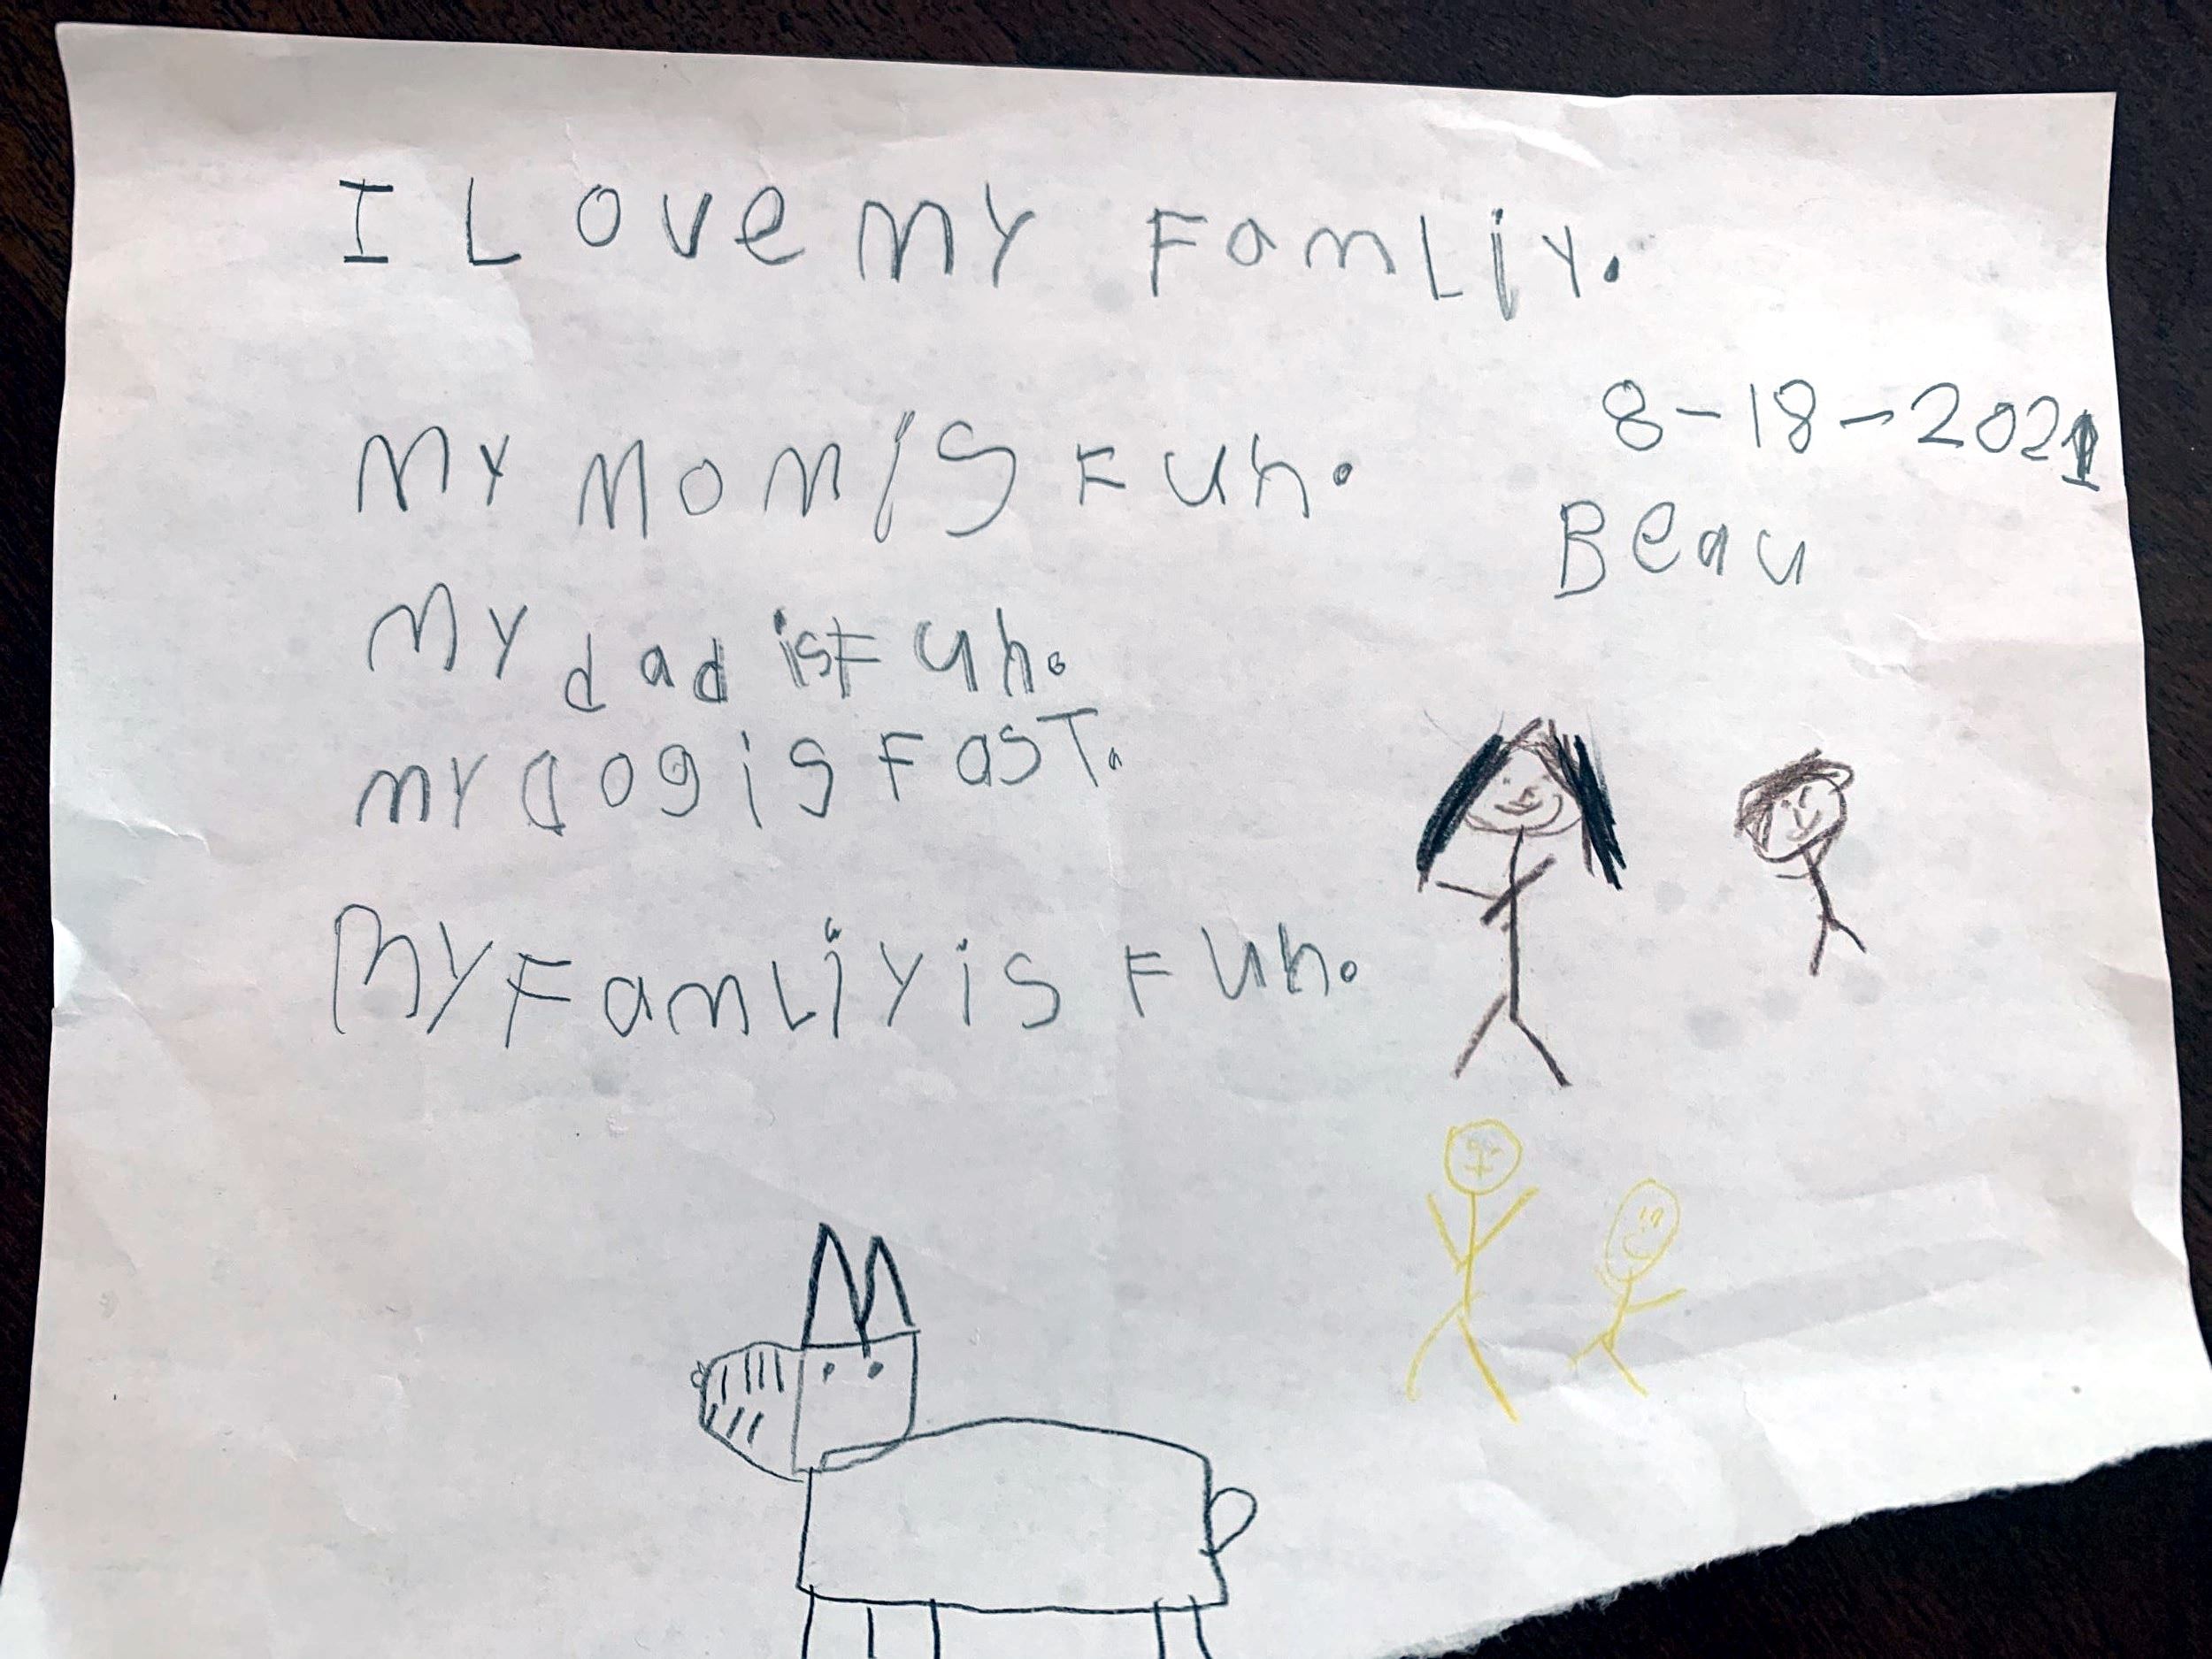 I Love my Famliy.
8-18-2021
my mom is Fun.
Beau
my dad is Fun.
my dog is FasT.
my Famliy is Fun.